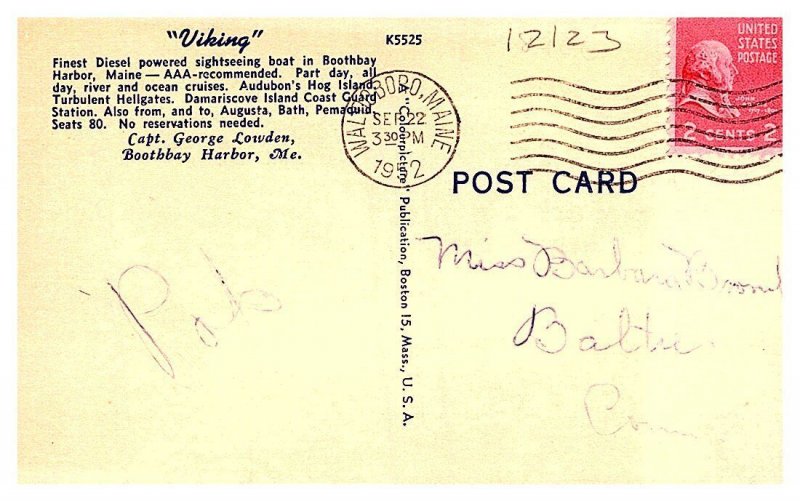 "Viking"
Finest Diesel powered sightseeing boat in Boothbay
Harbor, Maine — AAA-recommended. Part day, all
day, river and ocean cruises. Audubon's Hog Island,
Turbulent Hellgates. Damariscove Island Coast Guard
Station. Also from, and to, Augusta, Bath, Pemaquid
Seats 80. No reservations needed.
Capt. George Lowden,
Boothbay Harbor, Me.
K5525
12123
WALDOBORO, MAINE
SEP 22
3 30 PM
1952
UNITED
STATES
POSTAGE
JOHN
2 CENTS 2
POST CARD
A "Colourpicture" Publication, Boston 15, Mass., U. S. A.
Miss Barbara
Baltic
Conn